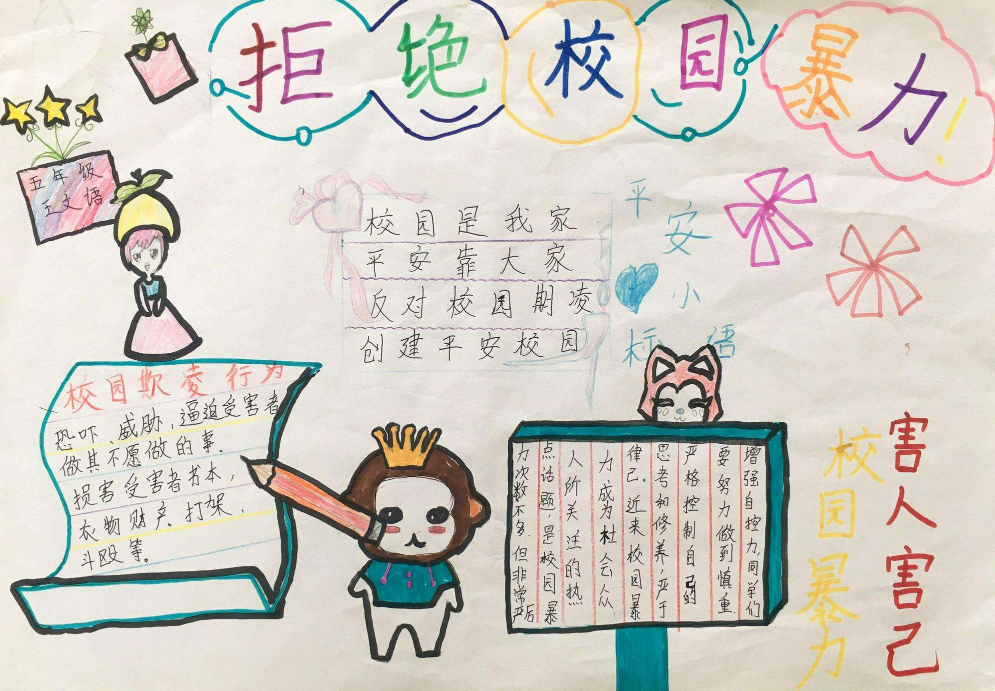 拒绝校园暴力！
五年级
王文
校园是我家
平安靠大家
反对校园期凌
创建平安校园
平安
小
标语
校园欺凌行为
恐吓、威胁，逼迫受害者
做其不愿做的事。
损害受害者书本，
衣物财产。打架、
斗殴等。
增强自控力，同学们
要努力做到慎重
严格控制自己的
思考和修养，严于
律己。近来校园暴
力成为杜会众
人所关注的热
点话题，是校园暴
力次数不多，但非常严后
害人害己
校园暴力